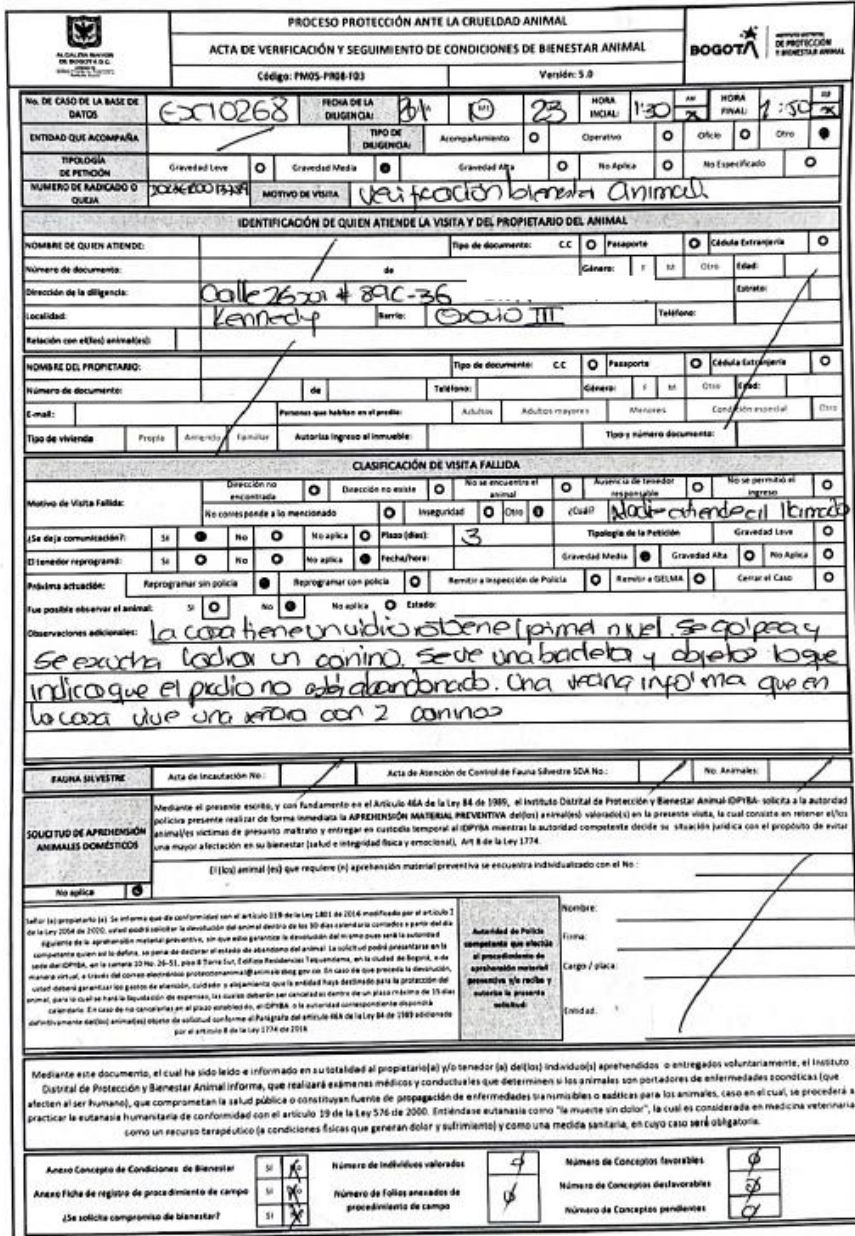 ALCALDÍA MAYOR
DE BOGOTÁ D.C.
PROCESO PROTECCIÓN ANTE LA CRUELDAD ANIMAL
ACTA DE VERIFICACIÓN Y SEGUIMIENTO DE CONDICIONES DE BIENESTAR ANIMAL
Código: PM05-PR08-F03 Versión: 5.0
BOGOTÁ
DE PROTECCIÓN
Y BIENESTAR ANIMAL
No. DE CASO DE LA BASE DE DATOS EXT0268 FECHA DE LA DILIGENCIA: 10 23 HORA INICIAL: 1:30 AM HORA FINAL: 1:50
ENTIDAD QUE ACOMPAÑA TIPO DE DILIGENCIA: Acompañamiento Operativo Oficio Otro
TIPOLOGÍA DE PETICIÓN Gravedad Leve Gravedad Media Gravedad Alta No Aplica No Especificado
NUMERO DE RADICADO O QUEJA MOTIVO DE VISITA Verificación bienestar animal
IDENTIFICACIÓN DE QUIEN ATIENDE LA VISITA Y DEL PROPIETARIO DEL ANIMAL
NOMBRE DE QUIEN ATIENDE: Tipo de documento: C.C Pasaporte Cédula Extranjería
Número de documento: de Género: F M Otro Edad:
Dirección de la diligencia: Calle 26 sur # 89C-36 Estrato:
Localidad: Kennedy Barrio: III Teléfono:
Relación con el(los) animal(es):
NOMBRE DEL PROPIETARIO: Tipo de documento: C.C Pasaporte Cédula Extranjería
Número de documento: de Teléfono: Género: F M Otro Edad:
E-mail: Personas que habitan en el predio: Adultos Adultos mayores Menores Condición especial Otro
Tipo de vivienda Propia Arriendo Familiar Autoriza ingreso al inmueble: Tipo y número documento:
CLASIFICACIÓN DE VISITA FALLIDA
Motivo de Visita Fallida: Dirección no encontrada Dirección no existe No se encuentra el animal Ausencia de tenedor responsable No se permitió el ingreso
No corresponde a lo mencionado Inseguridad Otro ¿Cuál? Nadie atiende al llamado
¿Se deja comunicación?: Si No No aplica Plazo (días): 3 Tipología de la Petición Gravedad Leve
El tenedor reprogramó: Si No No aplica Fecha/hora: Gravedad Media Gravedad Alta No Aplica
Próxima actuación: Reprogramar sin policía Reprogramar con policía Remitir a Inspección de Policía Remitir a GELMA Cerrar el Caso
Fue posible observar el animal: Si No No aplica Estado:
Observaciones adicionales: La casa tiene un vidrio primer nivel. Se golpea y
se escucha ladrar un canino. Se ve una y objetos lo que
indica que el predio no está abandonado. Una vecina informa que en
la casa vive una señora con 2 caninos
FAUNA SILVESTRE Acta de Incautación No.: Acta de Atención de Control de Fauna Silvestre SDA No.: No. Animales:
SOLICITUD DE APREHENSIÓN ANIMALES DOMÉSTICOS
No aplica
Mediante el presente escrito, y con fundamento en el Artículo 46A de la Ley 84 de 1989, el Instituto Distrital de Protección y Bienestar Animal-IDPYBA- solicita a la autoridad
policiva presente realizar de forma inmediata la APREHENSIÓN MATERIAL PREVENTIVA del(los) animal(es) valorado(s) en la presente visita, la cual consiste en retener el/los
animal/es víctimas de presunto maltrato y entregar en custodia temporal al IDPYBA mientras la autoridad competente decide su situación jurídica con el propósito de evitar
una mayor afectación en su bienestar (salud e integridad física y emocional), Art 8 de la Ley 1774.
El (los) animal (es) que requiere (n) aprehensión material preventiva se encuentra individualizado con el No :
Señor (a) propietario (a). Se informa que de conformidad con el artículo 119 de la Ley 1801 de 2016 modificado por el artículo 2
de la Ley 2054 de 2020, usted podrá solicitar la devolución del animal dentro de los 30 días calendario contados a partir del día
siguiente de la aprehensión material preventiva, sin que esto garantice la devolución del mismo pues será la autoridad
competente quien así lo defina, so pena de declarar el estado de abandono del animal. La solicitud podrá presentarse en la
sede del IDPYBA, en la carrera 10 No. 26-51, piso 8 Torre Sur, Edificio Residencias Tequendama, en la ciudad de Bogotá, o de
manera virtual, a través del correo electrónico proteccionanimal@animalesbog.gov.co. En caso de que proceda la devolución,
usted deberá garantizar los gastos de atención, cuidado y alojamiento que la entidad haya destinado para la protección del
animal, para lo cual se hará la liquidación de expensas, las cuales deberán ser canceladas dentro de un plazo máximo de 15 días
calendario. En caso de no cancelarlas en el plazo establecido, el IDPYBA o la autoridad correspondiente dispondrá
definitivamente del(los) animal(es) objeto de solicitud conforme el Parágrafo del artículo 46A de la Ley 84 de 1989 adicionado
por el artículo 8 de la Ley 1774 de 2016
Autoridad de Policía
competente que efectúa
el procedimiento de
aprehensión material
preventiva y/o recibe y
autoriza la presente
solicitud:
Nombre:
Firma:
Cargo / placa:
Entidad:
Mediante este documento, el cual ha sido leído e informado en su totalidad al propietario(a) y/o tenedor (a) del(los) individuo(s) aprehendidos o entregados voluntariamente, el Instituto
Distrital de Protección y Bienestar Animal informa, que realizará exámenes médicos y conductuales que determinen si los animales son portadores de enfermedades zoonóticas (que
afecten al ser humano), que comprometan la salud pública o constituyan fuente de propagación de enfermedades transmisibles o exóticas para los animales, caso en el cual, se procederá a
practicar la eutanasia humanitaria de conformidad con el artículo 19 de la Ley 576 de 2000. Entiéndase eutanasia como "la muerte sin dolor", la cual es considerada en medicina veterinaria
como un recurso terapéutico (a condiciones físicas que generan dolor y sufrimiento) y como una medida sanitaria, en cuyo caso será obligatoria.
Anexo Concepto de Condiciones de Bienestar SI No Número de individuos valorados Número de Conceptos favorables
Anexo Ficha de registro de procedimiento de campo SI No Número de Folios anexados de procedimiento de campo Número de Conceptos desfavorables
¿Se solicita compromiso de bienestar? SI Número de Conceptos pendientes